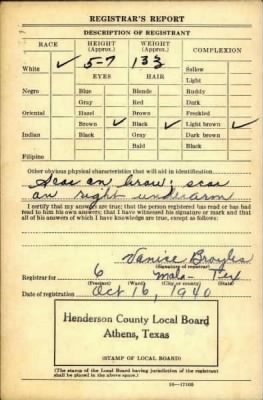 REGISTRAR'S REPORT
DESCRIPTION OF REGISTRANT
RACE HEIGHT (Approx.) WEIGHT (Approx.) COMPLEXION
White ✓ 5-7 133 Sallow
EYES HAIR Light
Negro Blue Blonde Ruddy
Gray Red Dark
Oriental Hazel Brown Freckled
Brown ✓ Black ✓ Light brown ✓
Indian Black Gray Dark brown
Bald Black
Filipino
Other obvious physical characteristics that will aid in identification
Scar on brow; scar
on right underarm
I certify that my answers are true; that the person registered has read or has had
read to him his own answers; that I have witnessed his signature or mark and that
all of his answers of which I have knowledge are true, except as follows:
Vanice Broyles
(Signature of registrar)
Registrar for 6 Mala- Tex
(Precinct) (Ward) (City or county) (State)
Date of registration Oct 16, 1940
Henderson County Local Board
Athens, Texas
(STAMP OF LOCAL BOARD)
(The stamp of the Local Board having jurisdiction of the registrant
shall be placed in the above space.)
16—17105